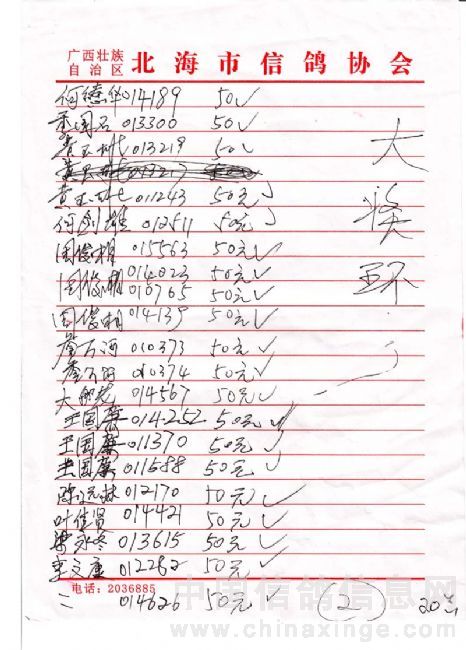 广西壮族
自治区 北海市信鸽协会
何德华 014189 50√
李国石 013300 50√
013219 50√
011243 50元√
何剑雄 012511 50元√
周俊相 015563 50元√
周俊相 014023 50元√
010765 50元√
周俊相 014139 50元√
010373 50元√
010374 50元√
014567 50元√
王国 014252 50元√
王国 011370 50元√
王国 011588 50元√
012170 50元√
叶佳贤 014421 50元√
梁永冬 013615 50元√
李文 012282 50元√
电话：2036885
014626 50元√ (2)
大
奖
环
中国信鸽信息网
www.chinaxinge.com